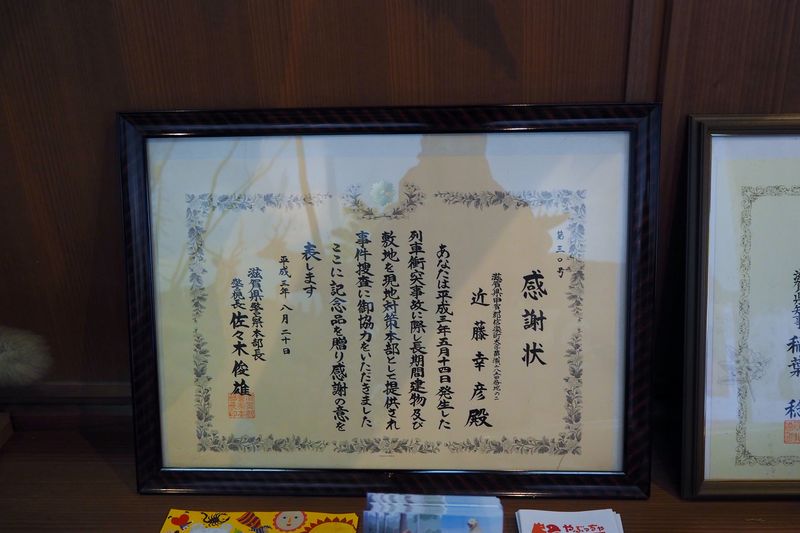 第三〇号
感謝状
近藤幸彦殿
あなたは平成三年五月十四日発生した
列車衝突事故に際し長期間建物及び
敷地を現地対策本部として提供され
事件捜査に御協力をいただきました
ここに記念品を贈り感謝の意を
表します
平成三年八月二十日
滋賀県警察本部長
警視長 佐々木俊雄
稲葉 稔